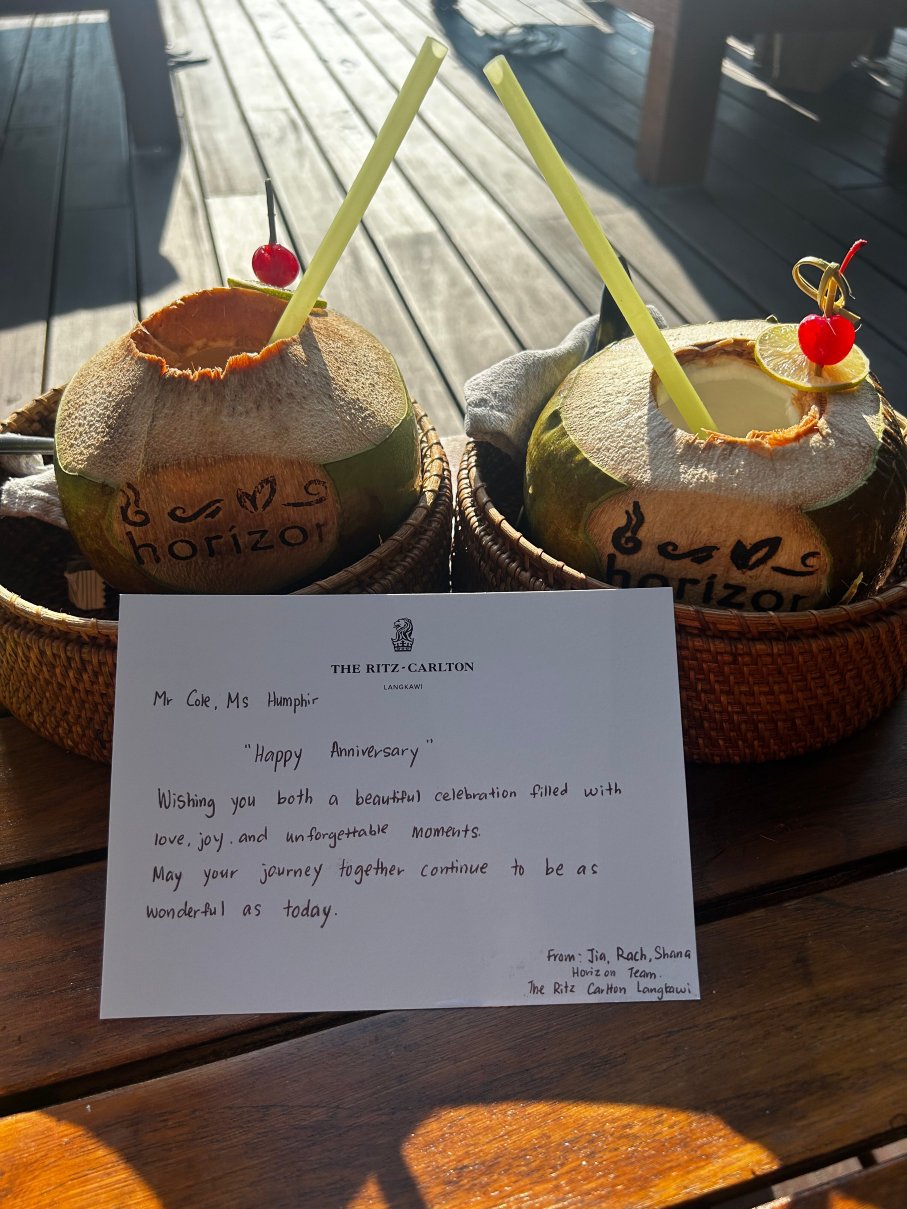 horizor
horizor
THE RITZ-CARLTON
LANGKAWI
Mr Cole, Ms Humphir
"Happy Anniversary"
Wishing you both a beautiful celebration filled with
love, joy, and unforgettable moments.
May your journey together continue to be as
wonderful as today.
From: Jia, Rach, Shana
Horizon Team.
The Ritz Carlton Langkawi